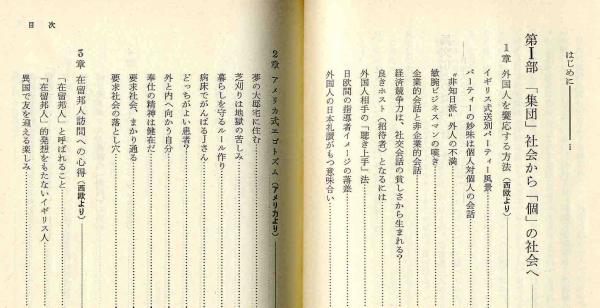 はじめに――― i
第Ⅰ部 「集団」社会から「個」の社会へ
1章 外国人を饗応する方法(西欧より)
イギリス式送別パーティー風景
パーティーの妙味は個人対個人の会話
“非知日派”外人の不満
敏腕ビジネスマンの嘆き
企業的会話と非企業的会話
経済競争力は、社交会話の貧しさから生まれる?
良きホスト(招待者)となるには
外国人相手の「聴き上手」法
日欧間の指導者イメージの落差
外国人の日本礼讃がもつ意味合い
目 次
2章 アメリカ式エゴトズム(アメリカより)
夢の大邸宅に住む
芝刈りは地獄の苦しみ
暮らしを守るルール作り
病床でがんばるJさん
どっちがよい患者?
外と内へ向かう自分
奉仕の精神は健在だ
要求社会、まかり通る
要求社会の落とし穴
3章 在留邦人訪問への心得(西欧より)
「在留邦人」と呼ばれること
「在留邦人」的発想をもたないイギリス人
異国で友を迎える楽しみ